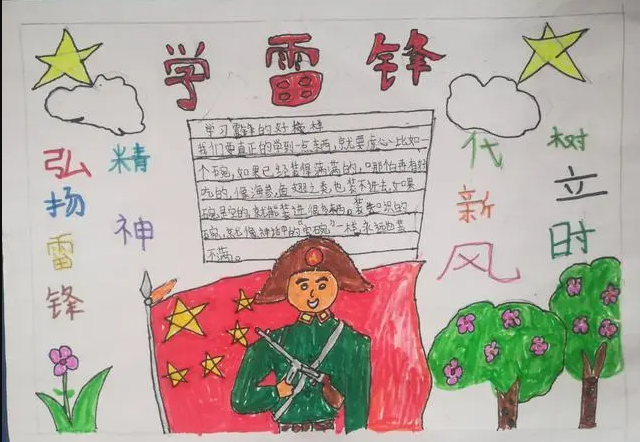 学雷锋
学习雷锋的好榜样
我们要真正的学到一点东西,就要虚心。比如一
个碗,如果已经装得满满的,
的,像海参、鱼翅之类也装不进去,如果
碗是空的,就能装进很多东西。装知识的
碗,就像神话中的“宝碗”一样,永远也装
不满。
弘扬雷锋
精神
树立时
代新风